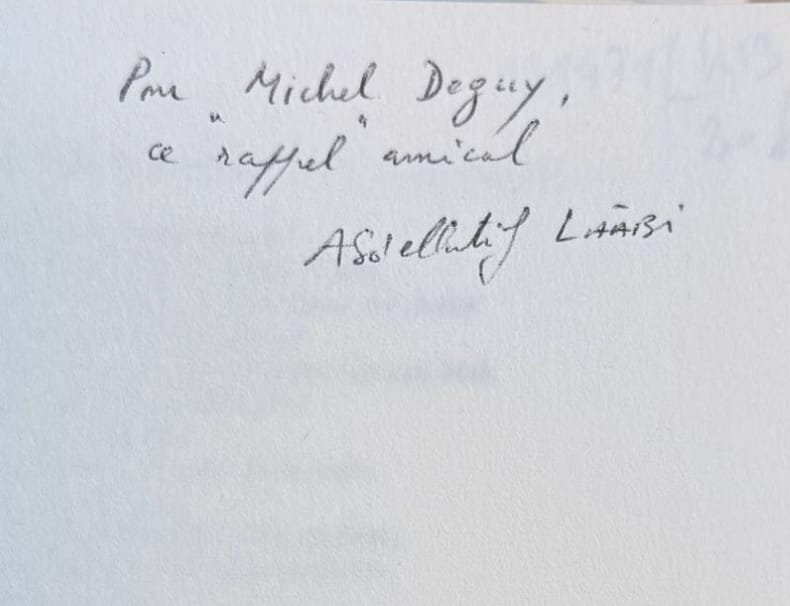 Pour Michel Deguy,
ce "rappel" amical
Abdellatif LAÂBi